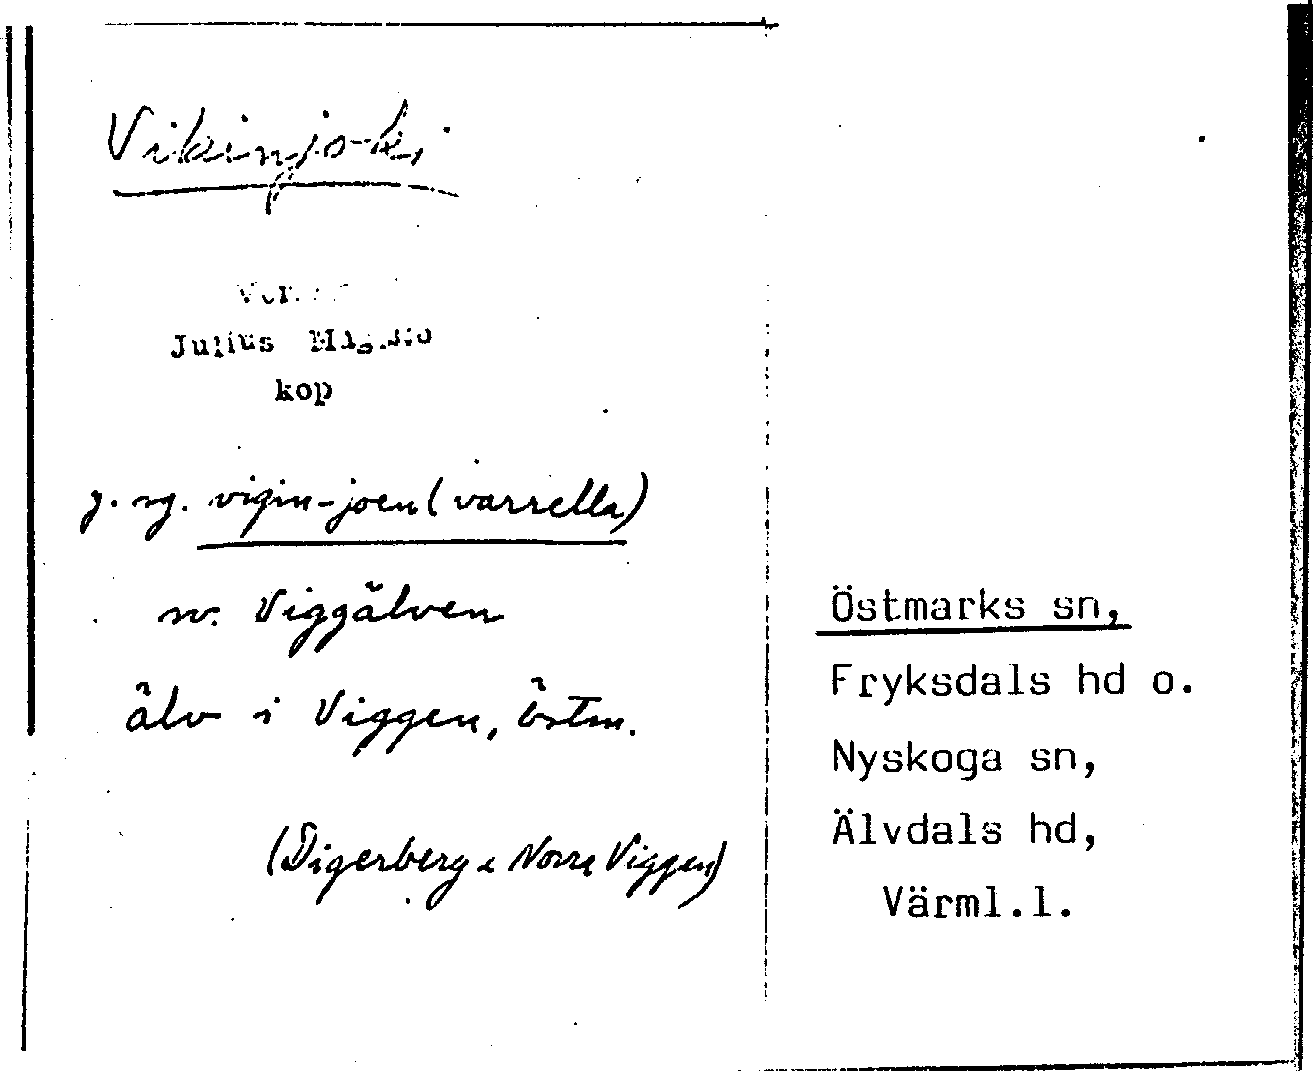 Vikinjoki
Julius
kop
g. sg. vigin-joen (varrella)
sv. Viggälven
älv i Viggen, Östm.
(Digerberg o Norra Viggen)
Östmarks sn,
Fryksdals hd o.
Nyskoga sn,
Älvdals hd,
Värml.l.